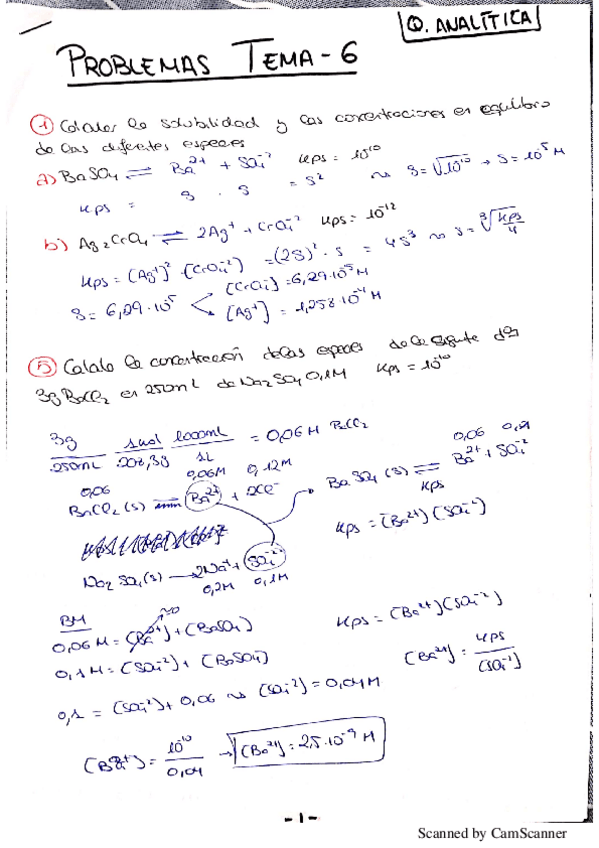 Q. ANALÍTICA
PROBLEMAS TEMA-6
① Calcular la solubilidad y las concentraciones en equilibrio
de las diferentes especies
a) BaSO4 ⇌ Ba²⁺ + SO4⁻² Kps = 10⁻¹⁰
Kps = s · s = s² ⇝ s = √10⁻¹⁰ → s = 10⁻⁵ M
b) Ag2CrO4 ⇌ 2Ag⁺ + CrO4⁻² Kps = 10⁻¹²
Kps = (Ag⁺)² · (CrO4⁻²) = (2s)² · s = 4s³ ⇝ s = ∛(Kps/4)
s = 6,29·10⁻⁵ [CrO4⁻] = 6,29·10⁻⁵ M
[Ag⁺] = 1,258·10⁻⁴ M
⑤ Calcula la concentración de las especies de la siguiente dis
3g BaCl2 en 250mL de Na2SO4 0,1M Kps = 10⁻¹⁰
3g / 250mL 1mol / 208,3g 1000mL / 1L = 0,06 M BaCl2
0,06 0,06M 0,12M
BaCl2 (s) Ba²⁺ + 2Cl⁻
0,06 0,1
BaSO4 (s) ⇌ Ba²⁺ + SO4⁻²
Kps
Kps = (Ba²⁺)(SO4⁻²)
Na2SO4 (s) → 2Na⁺ + SO4⁻²
0,2M 0,1M
BM
≈0
0,06 M = (Ba²⁺) + (BaSO4)
Kps = (Ba²⁺)(SO4⁻²)
0,1 M = (SO4⁻²) + (BaSO4)
(Ba²⁺) = Kps / (SO4⁻²)
0,1 = (SO4⁻²) + 0,06 ⇝ (SO4⁻²) = 0,04 M
(Ba²⁺) = 10⁻¹⁰ / 0,04 → (Ba²⁺) = 2,5·10⁻⁹ M
- 1 -
Scanned by CamScanner